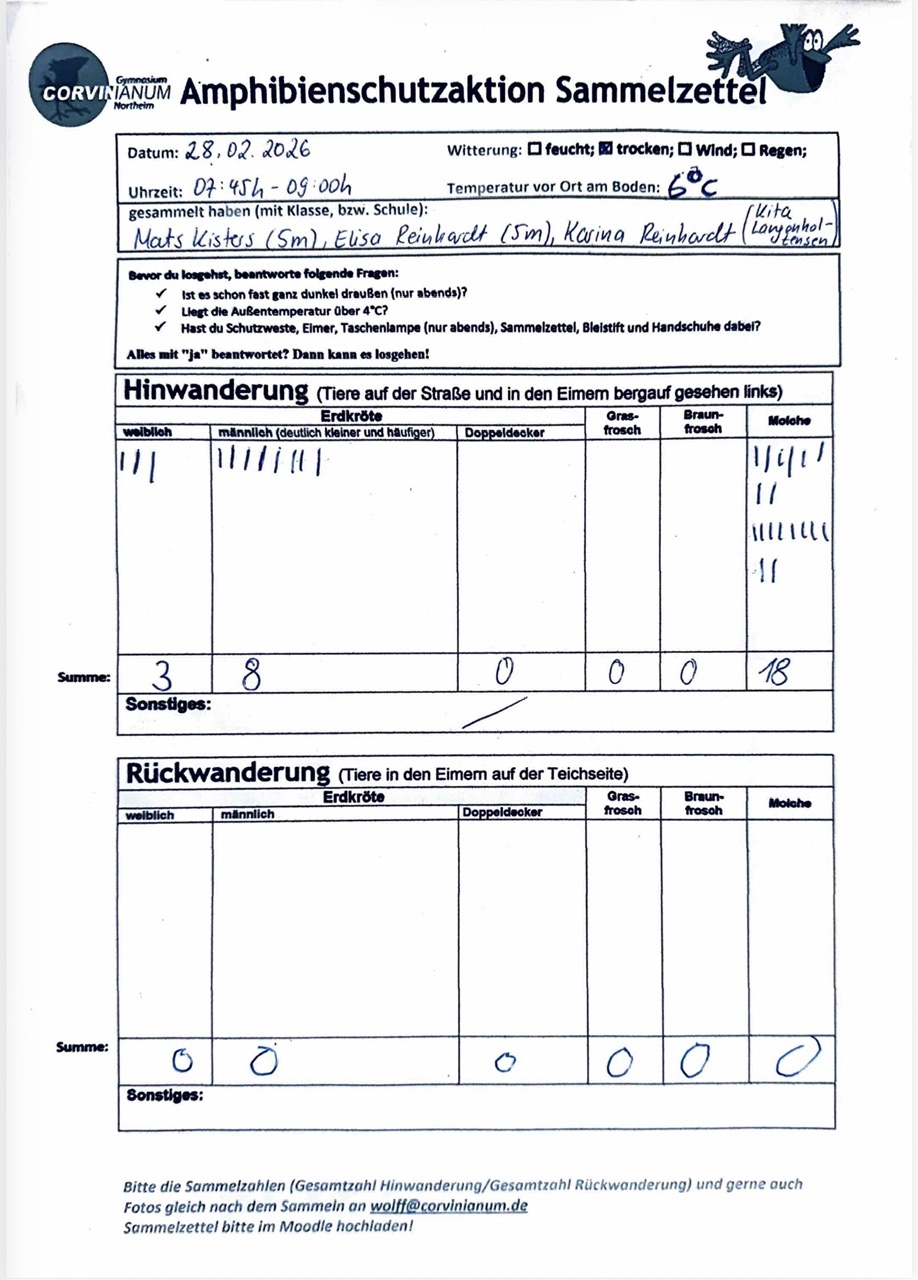 Gymnasium
CORVINIANUM
Northeim
Amphibienschutzaktion Sammelzettel
Datum: 28.02.2026 Witterung: ☐ feucht; ☒ trocken; ☐ Wind; ☐ Regen;
Uhrzeit: 07:45h - 09:00h Temperatur vor Ort am Boden: 6°C
gesammelt haben (mit Klasse, bzw. Schule):
Mats Kisters (5m), Elisa Reinhardt (5m), Karina Reinhardt (Kita Langenholtensen)
Bevor du losgehst, beantworte folgende Fragen:
✓ Ist es schon fast ganz dunkel draußen (nur abends)?
✓ Liegt die Außentemperatur über 4°C?
✓ Hast du Schutzweste, Eimer, Taschenlampe (nur abends), Sammelzettel, Bleistift und Handschuhe dabei?
Alles mit "ja" beantwortet? Dann kann es losgehen!
Hinwanderung (Tiere auf der Straße und in den Eimern bergauf gesehen links)
Erdkröte Gras-frosch Braun-frosch Molche
weiblich männlich (deutlich kleiner und häufiger) Doppeldecker
III IIIIIIII IIIII
II
IIIIIIIII
II
Summe: 3 8 0 0 0 18
Sonstiges: /
Rückwanderung (Tiere in den Eimern auf der Teichseite)
Erdkröte Gras-frosch Braun-frosch Molche
weiblich männlich Doppeldecker
Summe: 0 0 0 0 0 0
Sonstiges:
Bitte die Sammelzahlen (Gesamtzahl Hinwanderung/Gesamtzahl Rückwanderung) und gerne auch
Fotos gleich nach dem Sammeln an wolff@corvinianum.de
Sammelzettel bitte im Moodle hochladen!